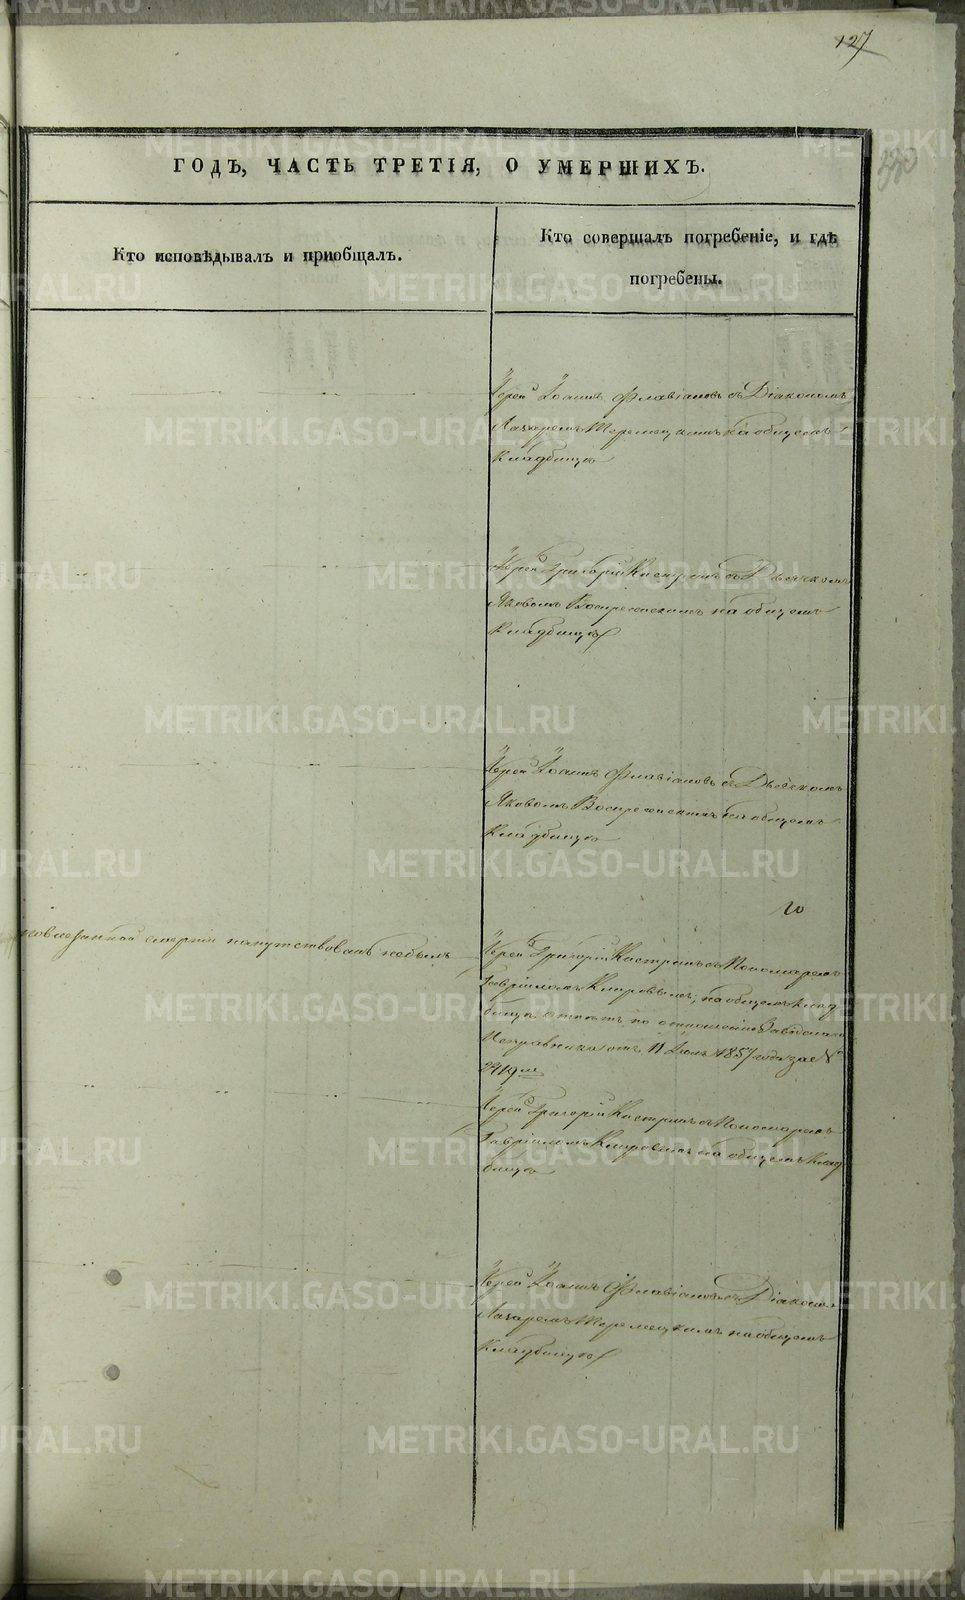 127
ГОДЪ, ЧАСТЬ ТРЕТІЯ, О УМЕРШИХЪ.
Кто исповѣдывалъ и пріобщалъ.
Кто совершалъ погребеніе, и гдѣ
погребены.
Іерей Іоаннъ Флавіановъ съ Діакономъ
Лазаремъ на общемъ
кладбищѣ
Іерей Григорій Кастринъ съ Дьячкомъ
Яковомъ Воскресенскимъ на общемъ
кладбищѣ
Іерей Іоаннъ Флавіановъ съ Дьячкомъ
Яковомъ Воскресенскимъ на общемъ
кладбищѣ
смерти напутствованъ небылъ
Іерей Григорій Кастринъ съ Пономаремъ
Гавріиломъ Кировымъ, на общемъ клад
бищѣ по отношенію Заводскаго
Исправника отъ 11 Іюля 1857 года за №
2219м
Іерей Григорій Кастринъ съ Пономаремъ
Гавріиломъ Кировымъ на общемъ клад
бищѣ
Іерей Іоаннъ Флавіановъ съ Діакономъ
Лазаремъ на общемъ
кладбищѣ
METRIKI.GASO-URAL.RU